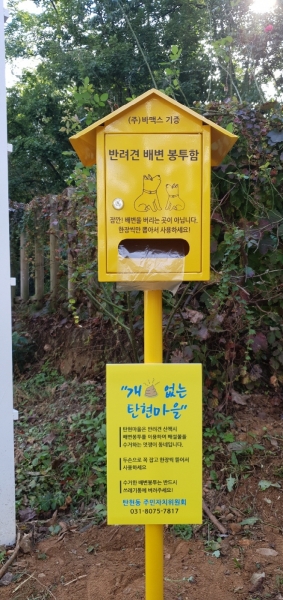 (주)바맥스 기증
반려견 배변 봉투함
잠깐! 배변을 버리는 곳이 아닙니다.
한장씩만 뽑아서 사용하세요!
"개 없는
탄현마을"
탄현마을은 반려견 산책시
배변봉투를 이용하여 배설물을
수거하는 멋쟁이 동네입니다.
두손으로 꼭 잡고 한장씩 뽑아서
사용하세요
수거한 배변봉투는 반드시
쓰레기통에 버려주세요!
탄현동 주민자치위원회
031-8075-7817